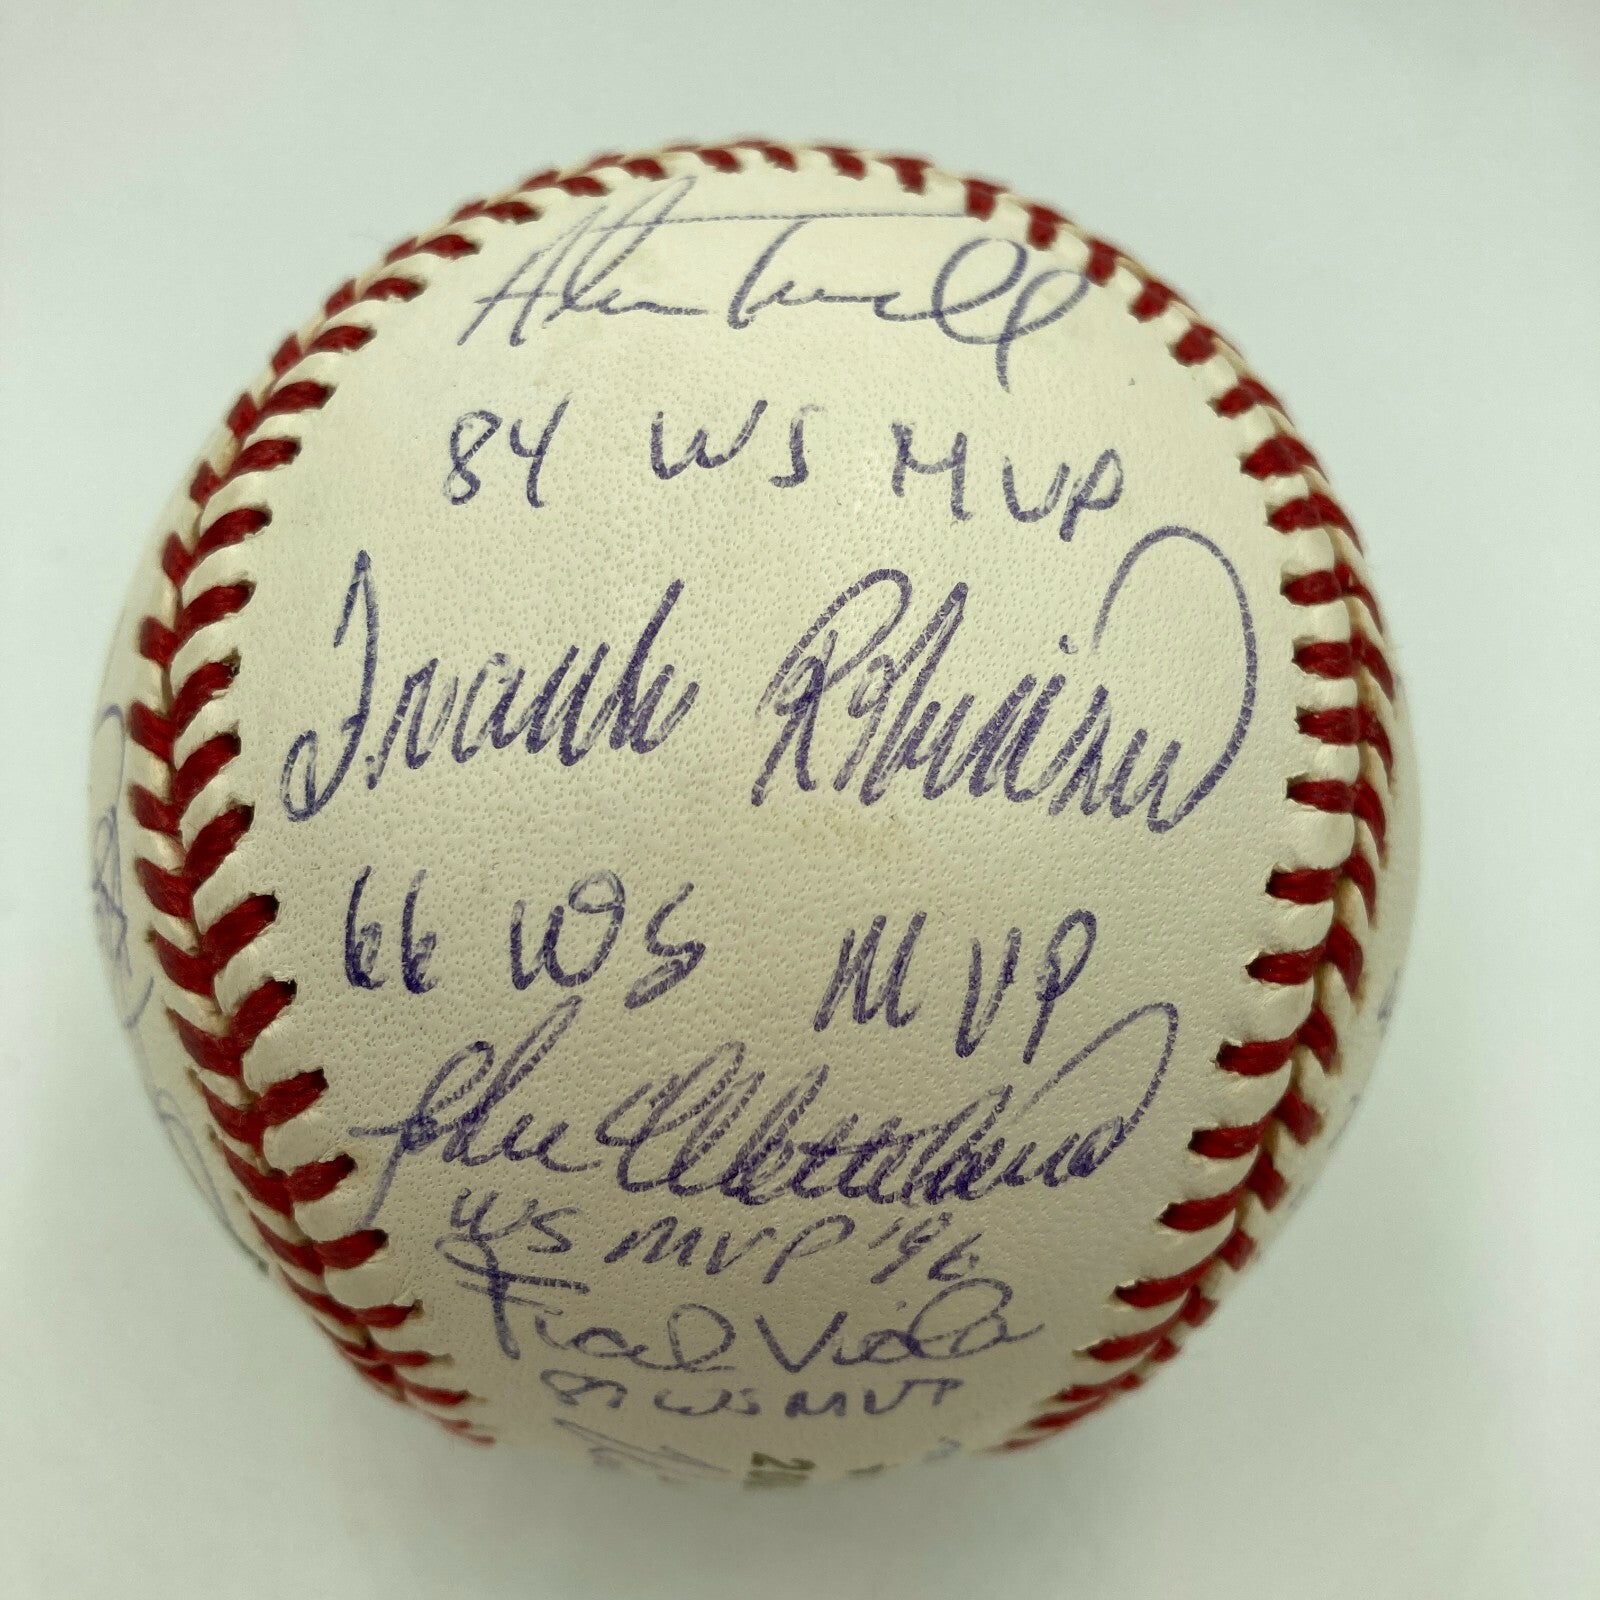 Alan Trammell
84 WS MVP
Frank Robinson
66 WS MVP
John Wetteland
WS MVP '96
Frank Viola
87 WS MVP